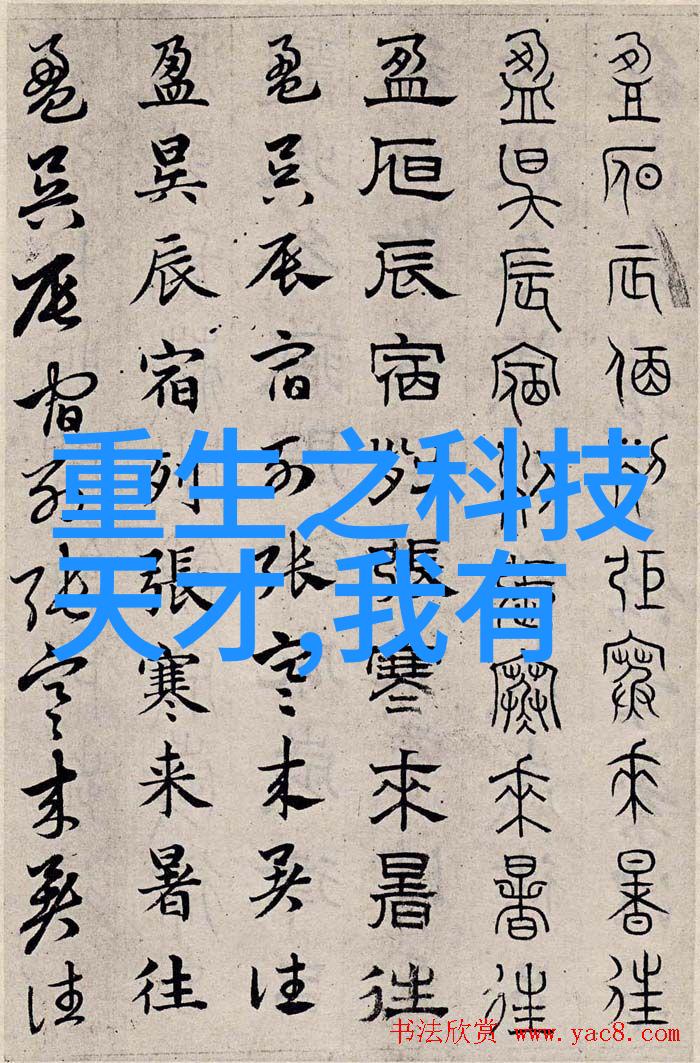 盈昃辰宿列張寒來暑往
盈昃辰宿列張寒來暑往
盈昃辰宿列張寒來暑往
盈昃辰宿列张寒来暑往
盈昃辰宿列張寒来暑往
盈昃辰宿列张寒来暑往
重生之科技
天才,我有
书法欣赏 www.yac8.com